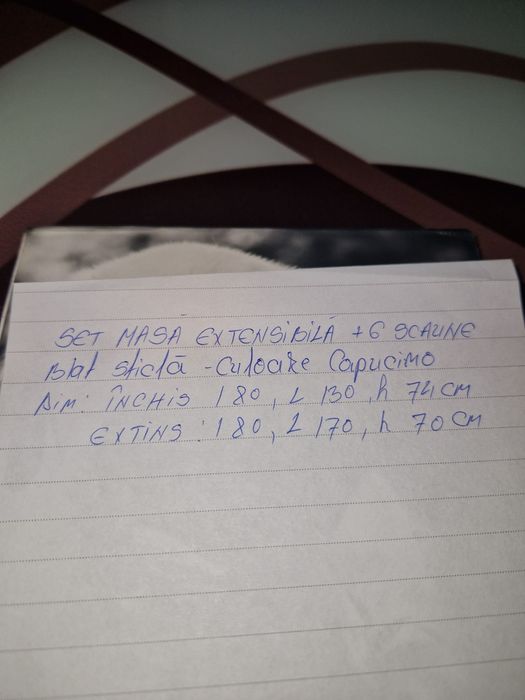 SET MASĂ EXTENSIBILĂ + 6 SCAUNE
Blat sticlă - Culoare Capucino
Dim: ÎNCHIS l 80, L 130, h 74 CM
EXTINS: l 80, L 170, h 70 CM